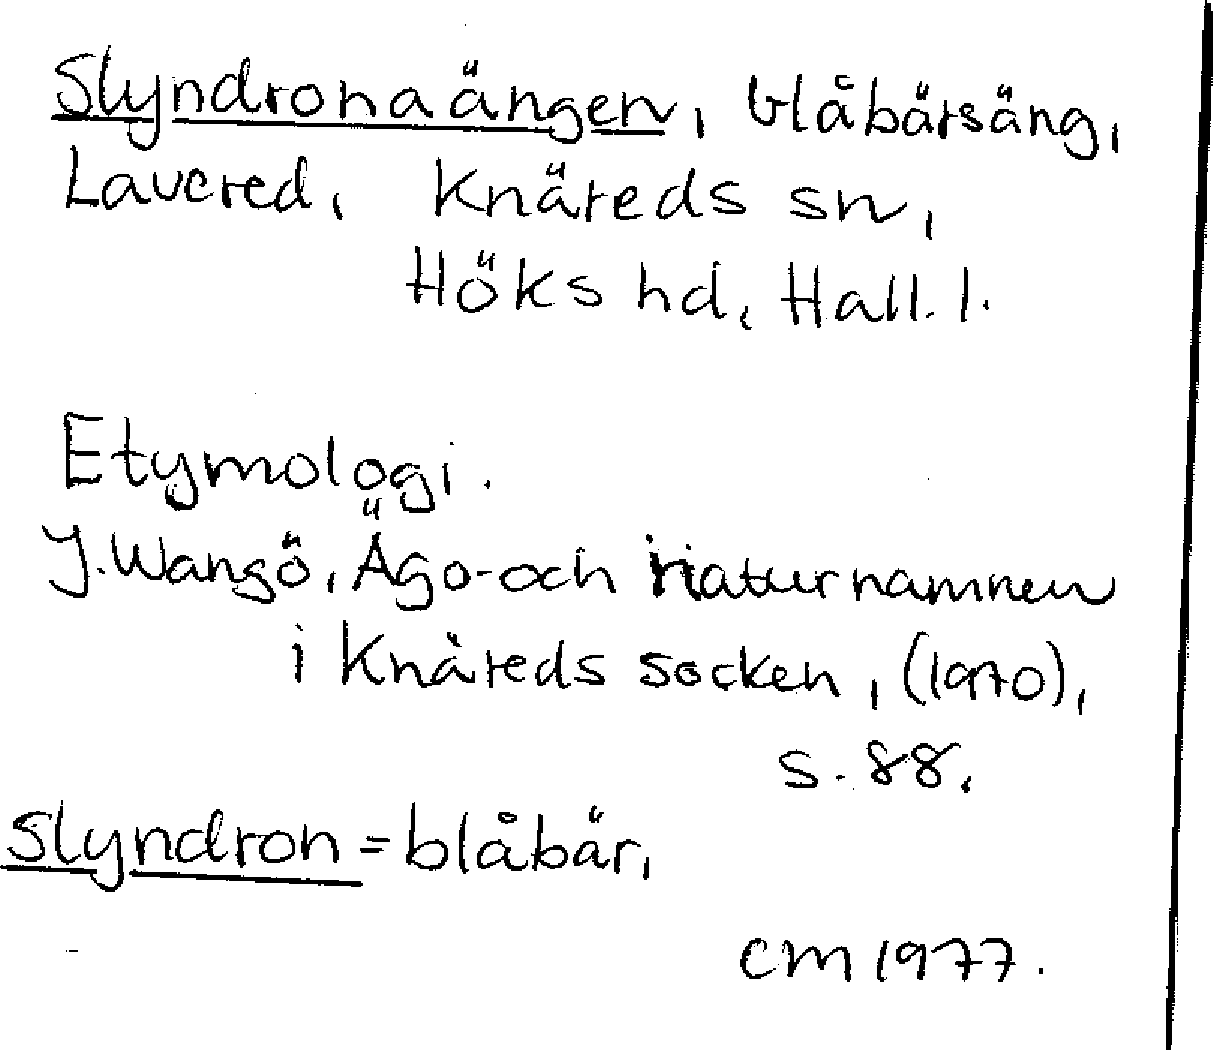 Slyndronaängen, blåbärsäng,
Lavered, Knäreds sn,
Höks hd, Hall. l.
Etymologi.
J. Wangö, Ägo- och naturnamnen
i Knäreds socken, (1970),
s. 88.
slyndron = blåbär,
CM 1977.